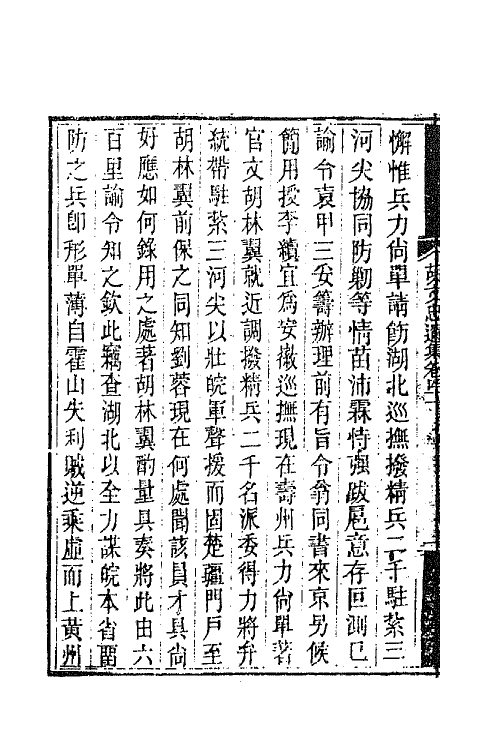 懈惟兵力尙單請飭湖北巡撫撥精兵二千駐紮三
河尖協同防勦等情苗沛霖恃强跋扈意存叵測已
諭令袁甲三妥籌辦理前有旨令翁同書來京另候
簡用授李續宜爲安徽巡撫現在壽州兵力尙單著
官文胡林翼就近調撥精兵二千名派委得力將弁
統帶駐紮三河尖以壯皖軍聲援而固楚疆門戶至
胡林翼前保之同知劉蓉現在何處聞該員才具尙
好應如何錄用之處著胡林翼酌量具奏將此由六
百里諭令知之欽此竊查湖北以全力謀皖本省留
防之兵卽形單薄自霍山失利賊逆乘虛而上黃州